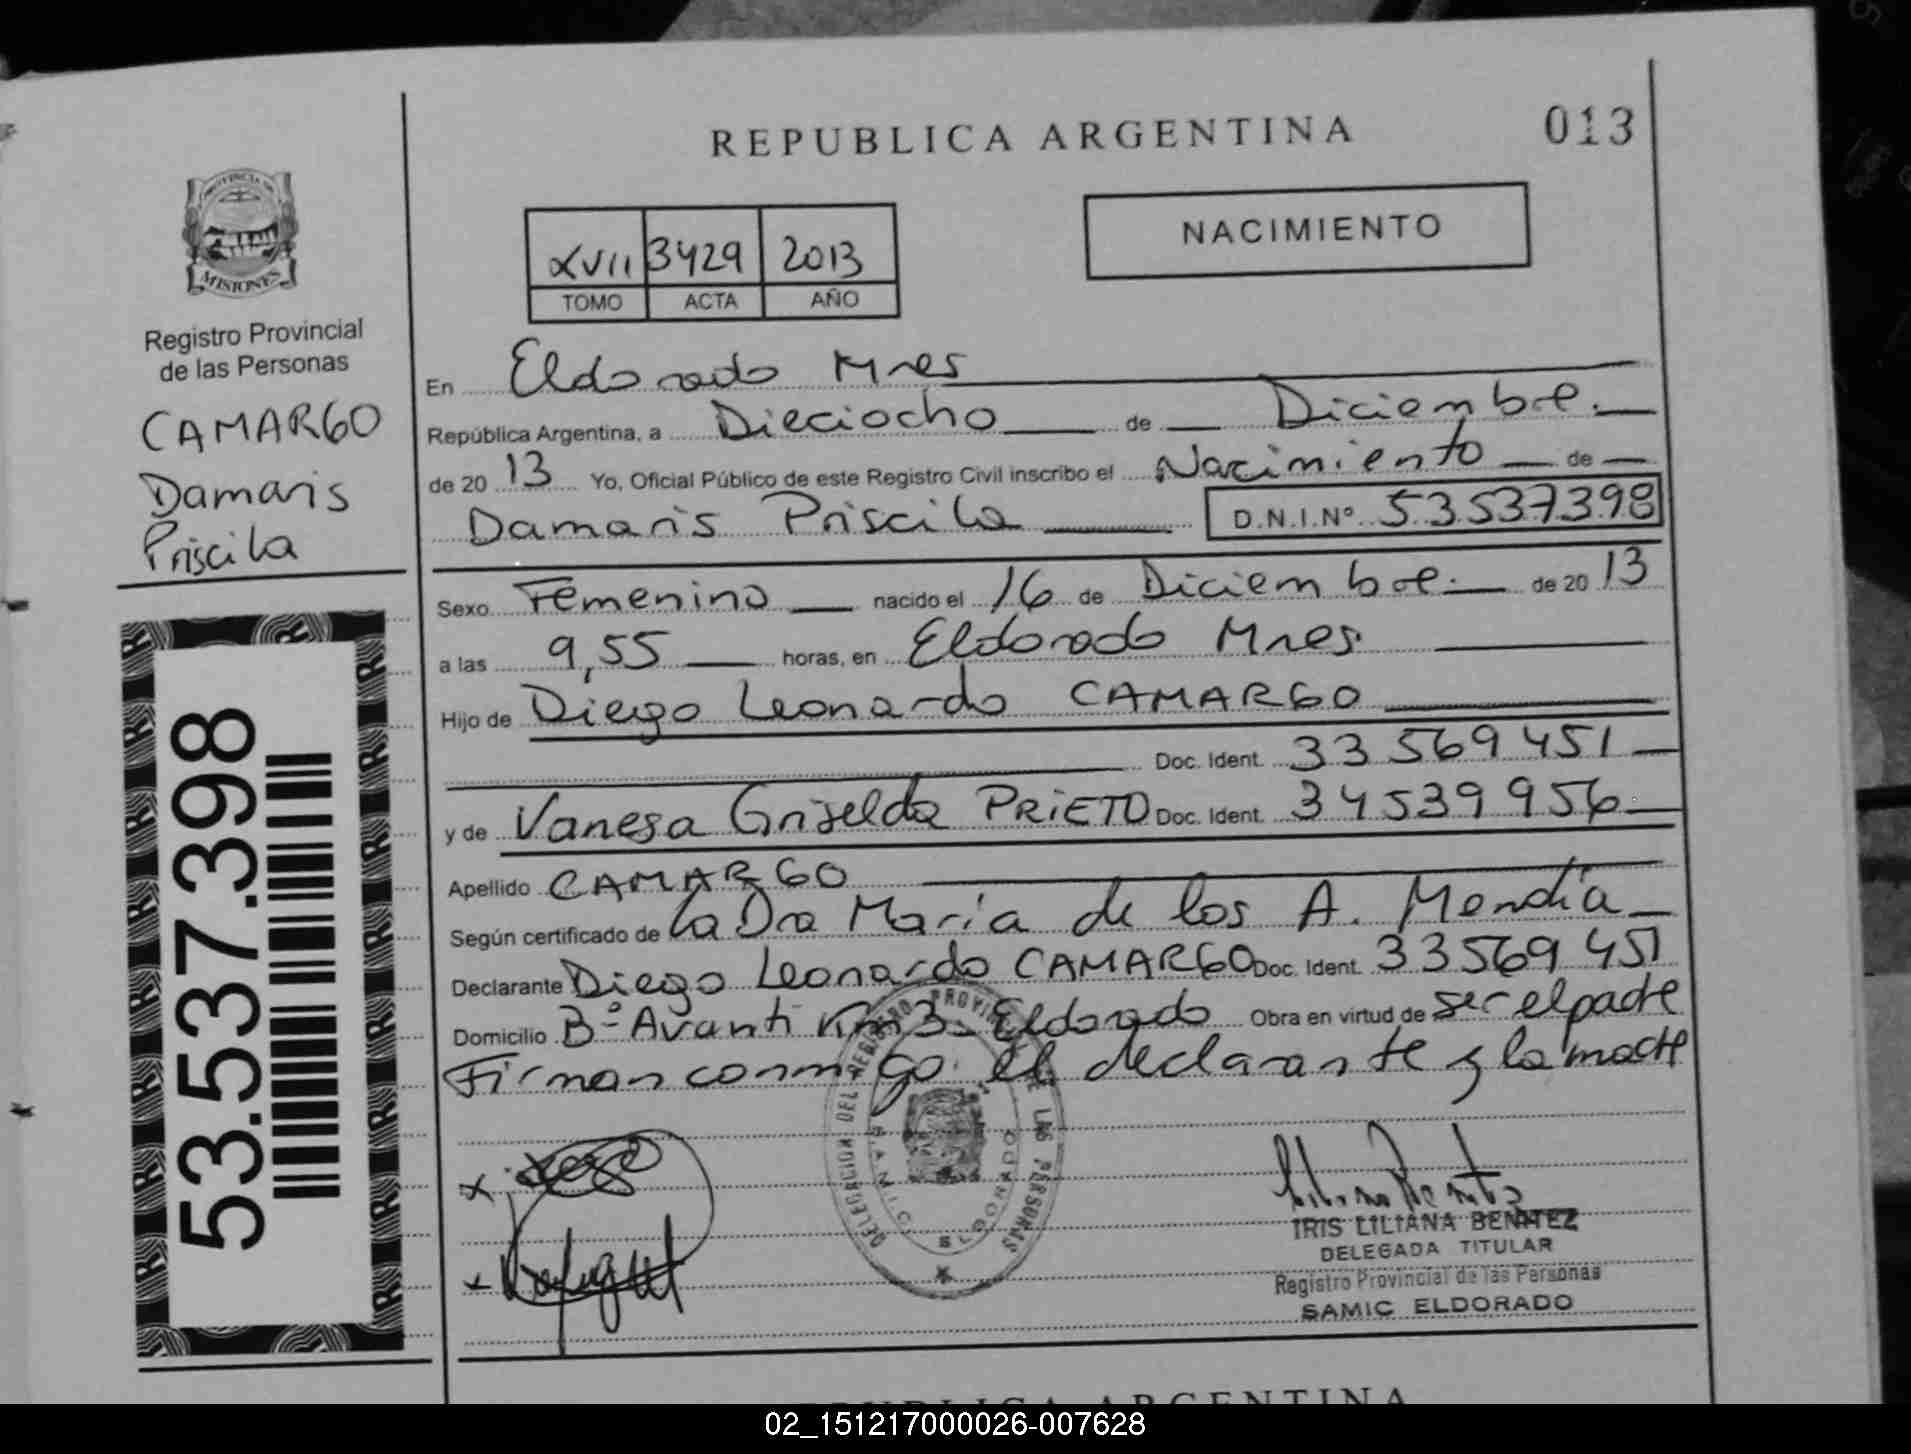 REPUBLICA ARGENTINA
013
PROVINCIA DE
MISIONES
Registro Provincial
de las Personas
CAMARGO
Damaris
Priscila
53.537.398
NACIMIENTO
XVII 3429 2013
TOMO ACTA AÑO
En Eldorado Mnes
República Argentina, a Dieciocho de Diciembre.
de 20 13 Yo, Oficial Público de este Registro Civil inscribo el Nacimiento de
Damaris Priscila D.N.I.Nº 53537398
Sexo Femenino nacido el 16 de Diciembre. de 20 13
a las 9,55 horas, en Eldorado Mnes.
Hijo de Diego Leonardo CAMARGO
Doc. Ident. 33 569 451
y de Vanesa Griselda PRIETO Doc. Ident. 34539956
Apellido CAMARGO
Según certificado de la Dra María de los A. Mendía
Declarante Diego Leonardo CAMARGO Doc. Ident. 33569 451
Domicilio Bº Avanti Km 3 - Eldorado Obra en virtud de ser el padre
Firman conmigo el declarante y la madre
DELEGACION DEL REGISTRO PROVINCIAL DE LAS PERSONAS
SAMIC ELDORADO
IRIS LILIANA BENITEZ
DELEGADA TITULAR
Registro Provincial de las Personas
SAMIC ELDORADO
REPUBLICA ARGENTINA
02_151217000026-007628